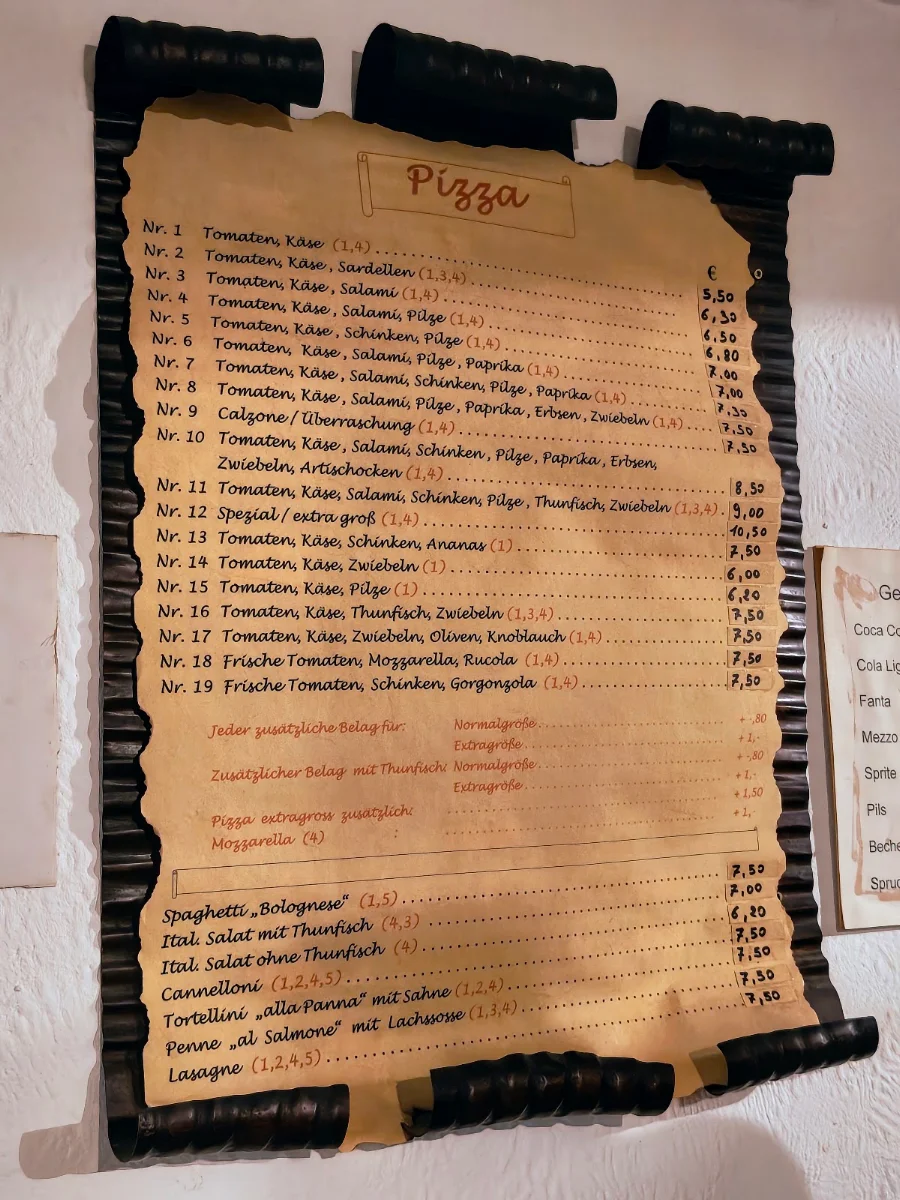 Pizza
€
Nr. 1 Tomaten, Käse (1,4) 5,50
Nr. 2 Tomaten, Käse, Sardellen (1,3,4) 6,30
Nr. 3 Tomaten, Käse, Salami (1,4) 6,50
Nr. 4 Tomaten, Käse, Salami, Pilze (1,4) 6,80
Nr. 5 Tomaten, Käse, Schinken, Pilze (1,4) 7,00
Nr. 6 Tomaten, Käse, Salami, Pilze, Paprika (1,4) 7,00
Nr. 7 Tomaten, Käse, Salami, Schinken, Pilze, Paprika (1,4) 7,30
Nr. 8 Tomaten, Käse, Salami, Pilze, Paprika, Erbsen, Zwiebeln (1,4) 7,50
Nr. 9 Calzone / Überraschung (1,4) 7,50
Nr. 10 Tomaten, Käse, Salami, Schinken, Pilze, Paprika, Erbsen,
Zwiebeln, Artischocken (1,4) 8,50
Nr. 11 Tomaten, Käse, Salami, Schinken, Pilze, Thunfisch, Zwiebeln (1,3,4) 9,00
Nr. 12 Spezial / extra groß (1,4) 10,50
Nr. 13 Tomaten, Käse, Schinken, Ananas (1) 7,50
Nr. 14 Tomaten, Käse, Zwiebeln (1) 6,00
Nr. 15 Tomaten, Käse, Pilze (1) 6,20
Nr. 16 Tomaten, Käse, Thunfisch, Zwiebeln (1,3,4) 7,50
Nr. 17 Tomaten, Käse, Zwiebeln, Oliven, Knoblauch (1,4) 7,50
Nr. 18 Frische Tomaten, Mozzarella, Rucola (1,4) 7,50
Nr. 19 Frische Tomaten, Schinken, Gorgonzola (1,4) 7,50
Jeder zusätzliche Belag für: Normalgröße + -,80
Extragröße + 1,-
Zusätzlicher Belag mit Thunfisch: Normalgröße + -,80
Extragröße + 1,-
Pizza extragross zusätzlich: + 1,50
Mozzarella (4) : + 1,-
Spaghetti „Bolognese“ (1,5) 7,50
Ital. Salat mit Thunfisch (4,3) 7,00
Ital. Salat ohne Thunfisch (4) 6,20
Cannelloni (1,2,4,5) 7,50
Tortellini „alla Panna“ mit Sahne (1,2,4) 7,50
Penne „al Salmone“ mit Lachssosse (1,3,4) 7,50
Lasagne (1,2,4,5) 7,50
Ge
Coca Co
Cola Lig
Fanta
Mezzo
Sprite
Pils
Beche
Spruc